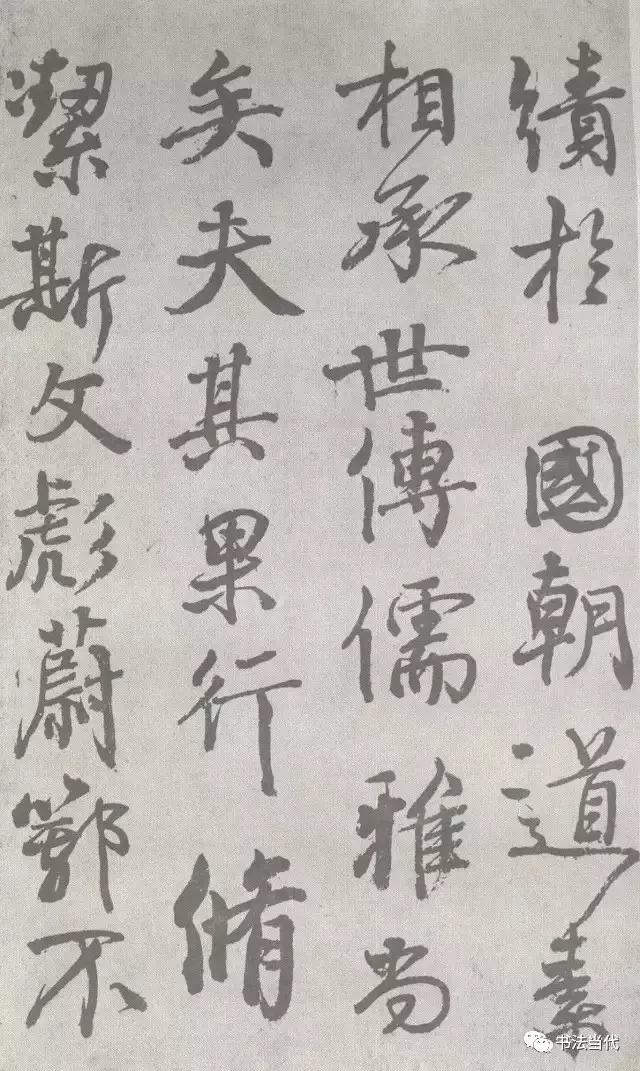 績於 國朝道素
相承世傳儒雅尚
矣夫其果行脩
潔斯文彪蔚鄂不
书法当代